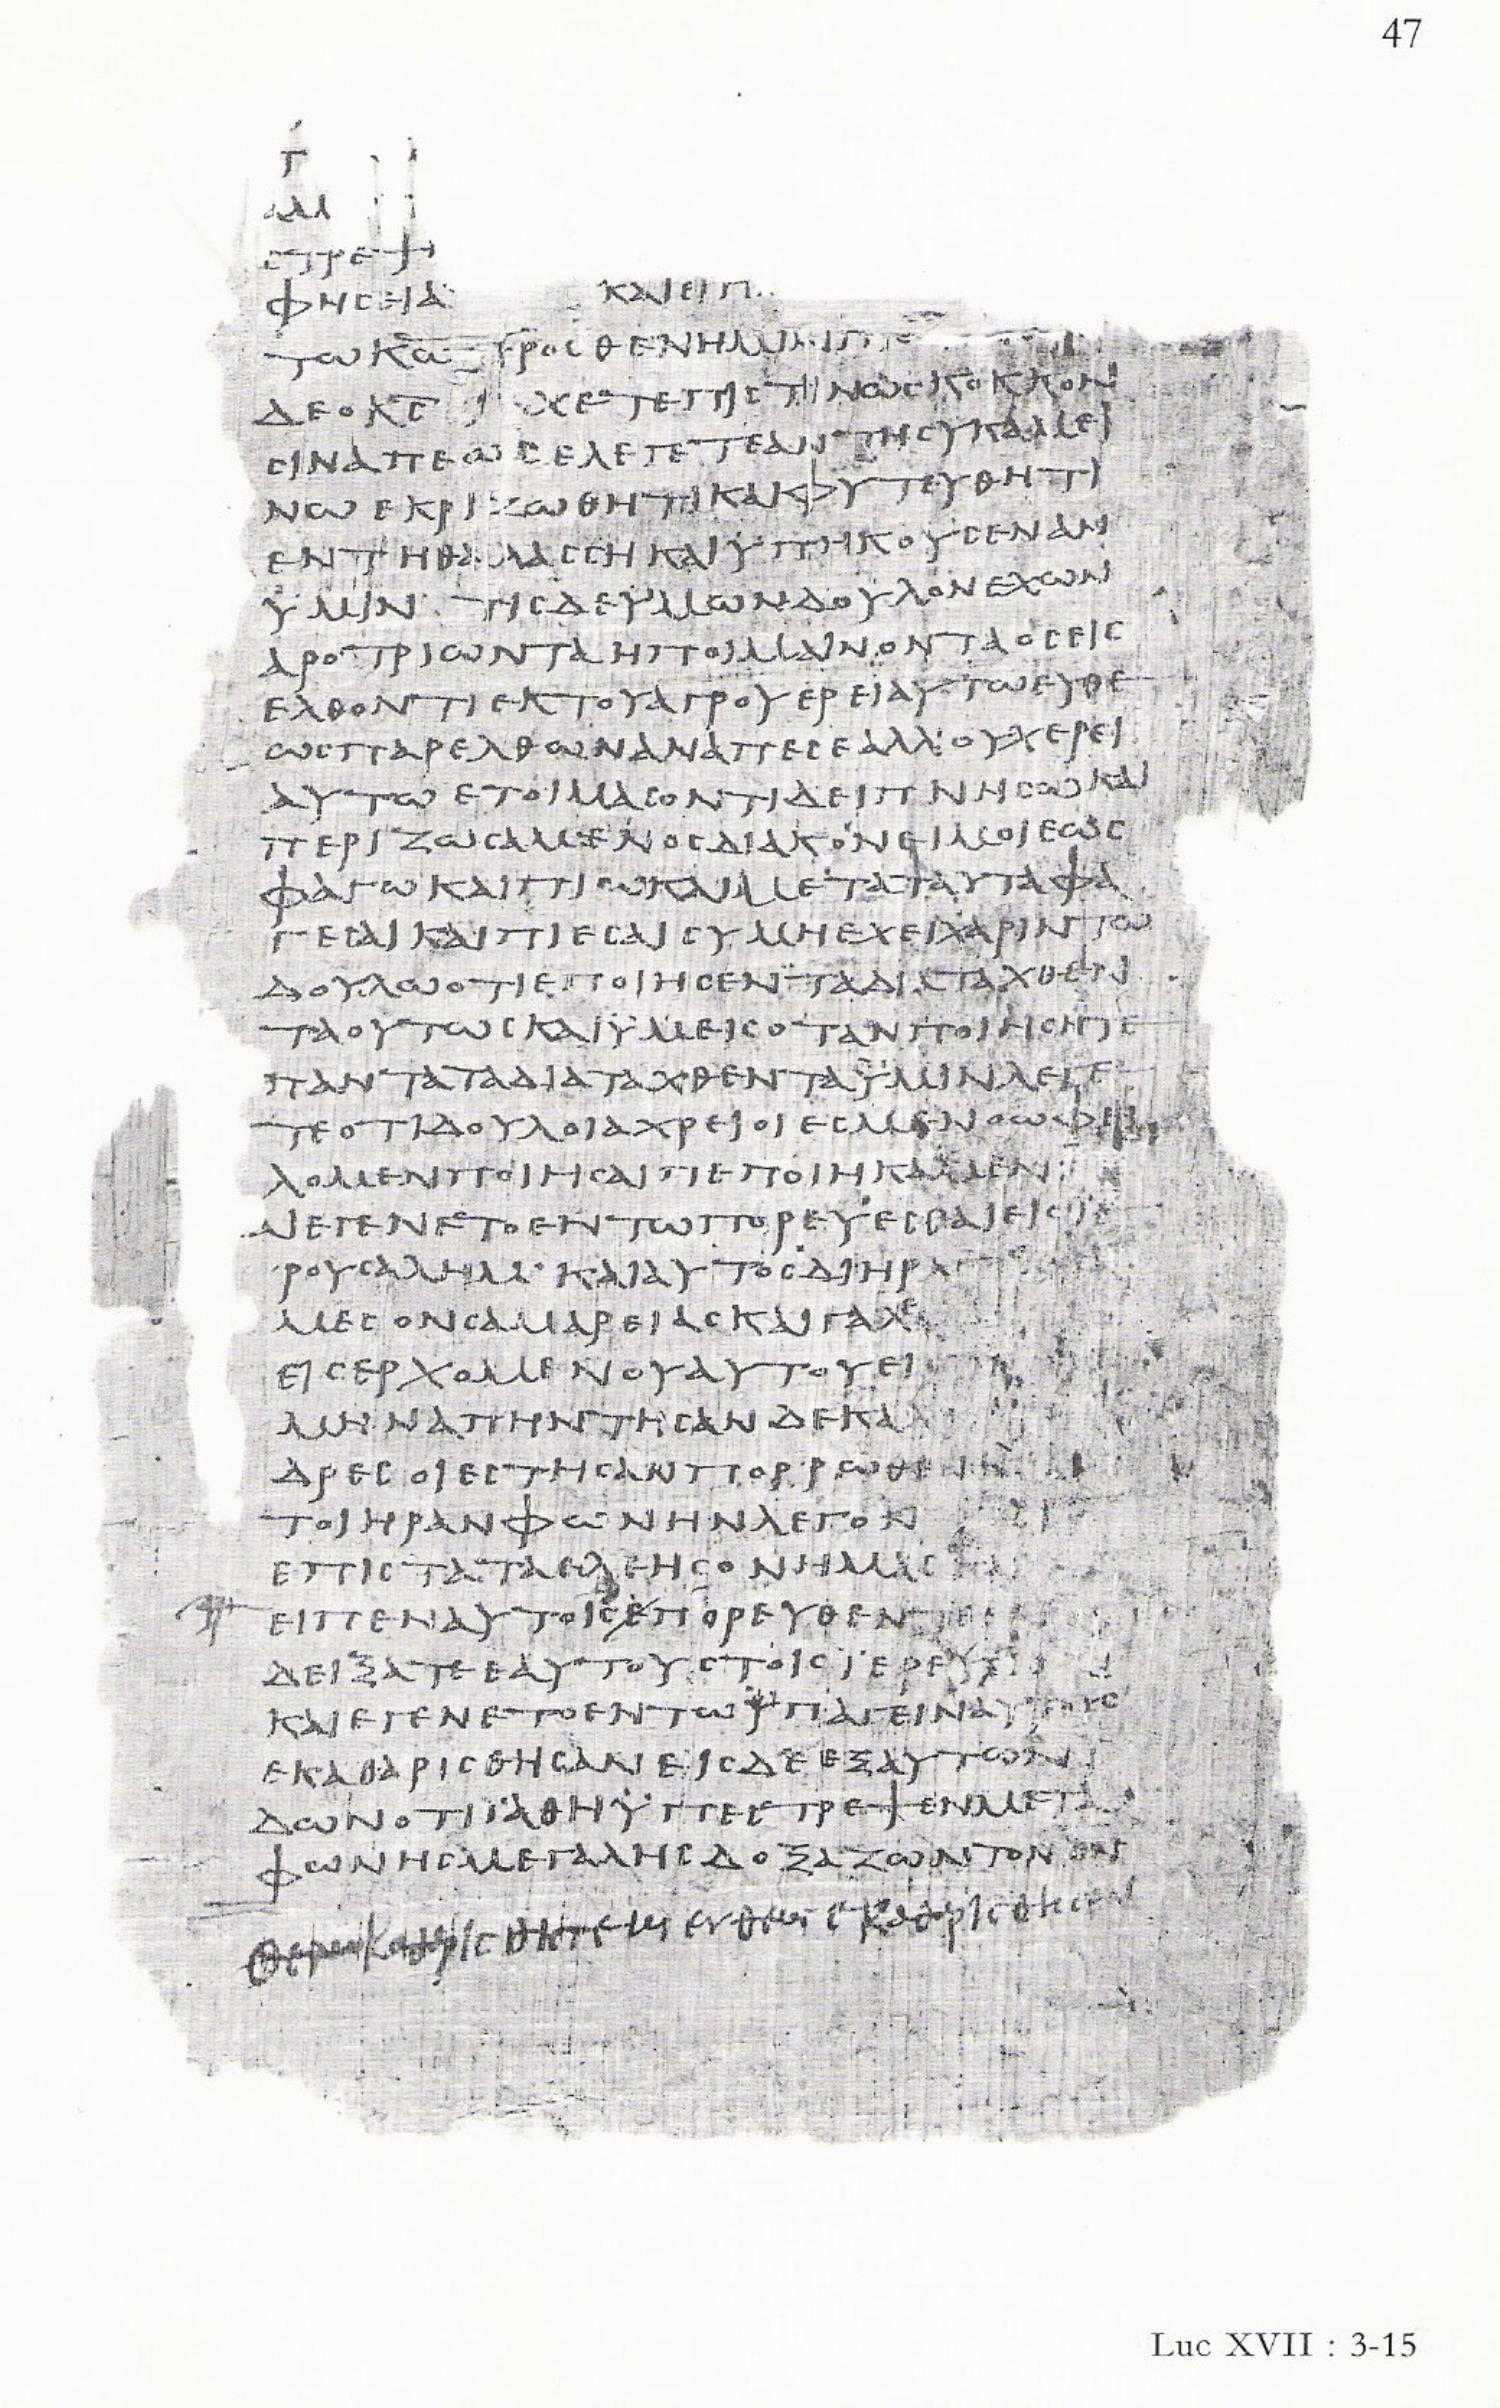 47
Γ
ΑΜ
ϹΤΡΕΨ
ΦΗϹΕΙΑ ΚΑΙΕΙΠ
ΤΩΚΩ ΠΡΟϹΘΕΝΗΜΙΝΠΙ
ΔΕΟΚϹ ΕΧΕΤΕΠΙϹΤΙΝΩϹΚΟΚΚΟΝ
ϹΙΝΑΠΕΩϹΕΛΕΓΕΤΕΑΝΤΗϹΥΚΑΜΕΙ
ΝΩΕΚΡΙΖΩΘΗΤΙΚΑΙΦΥΤΕΥΘΗΤΙ
ΕΝΤΗΘΑΛΑϹϹΗΚΑΙΫΠΗΚΟΥϹΕΝΑΝ
ΫΜΙΝ ΤΙϹΔΕΫΜΩΝΔΟΥΛΟΝΕΧΩΝ
ΑΡΟΤΡΙΩΝΤΑΗΠΟΙΜΑΙΝΟΝΤΑΟϹΕΙϹ
ΕΛΘΟΝΤΙΕΚΤΟΥΑΓΡΟΥΕΡΕΙΑΥΤΩΕΥΘΕ
ΩϹΠΑΡΕΛΘΩΝΑΝΑΠΕϹΕΑΛΛΟΥΧΕΡΕΙ
ΑΥΤΩΕΤΟΙΜΑϹΟΝΤΙΔΕΙΠΝΗϹΩΚΑΙ
ΠΕΡΙΖΩϹΑΜΕΝΟϹΔΙΑΚΟΝΕΙΜΟΙΕΩϹ
ΦΑΓΩΚΑΙΠΙΩΚΑΙΜΕΤΑΤΑΥΤΑΦΑ
ΓΕϹΑΙΚΑΙΠΙΕϹΑΙϹΥΜΗΕΧΕΙΧΑΡΙΝΤΩ
ΔΟΥΛΩΟΤΙΕΠΟΙΗϹΕΝΤΑΔΙΑΤΑΧΘΕΝ
ΤΑΟΥΤΩϹΚΑΙΫΜΕΙϹΟΤΑΝΠΟΙΗϹΗΤΕ
ΠΑΝΤΑΤΑΔΙΑΤΑΧΘΕΝΤΑΫΜΙΝΛΕΓΕ
ΤΕΟΤΙΔΟΥΛΟΙΑΧΡΕΙΟΙΕϹΜΕΝΟΩΦΕΙ
ΛΟΜΕΝΠΟΙΗϹΑΙΠΕΠΟΙΗΚΑΜΕΝ
ΑΙΕΓΕΝΕΤΟΕΝΤΩΠΟΡΕΥΕϹΘΑΙΕΙϹΙΕ
ΡΟΥϹΑΛΗΜ ΚΑΙΑΥΤΟϹΔΙΗΡ
ΜΕϹΟΝϹΑΜΑΡΕΙΑϹΚΑΙΓΑΛΕ
ΕΙϹΕΡΧΟΜΕΝΟΥΑΥΤΟΥΕΙ
ΜΗΝΑΠΗΝΤΗϹΑΝΔΕΚΑ
ΔΡΕϹΟΙΕϹΤΗϹΑΝΠΟΡΡΩΘΕΝ
ΤΟΙΗΡΑΝΦΩΝΗΝΛΕΓΟΝ
ΕΠΙϹΤΑΤΑΕΛΕΗϹΟΝΗΜΑϹ
ΕΙΠΕΝΑΥΤΟΙϹΠΟΡΕΥΘΕΝΤΕ
ΔΕΙΞΑΤΕΕΑΥΤΟΥϹΤΟΙϹΪΕΡΕΥϹΙ
ΚΑΙΕΓΕΝΕΤΟΕΝΤΩΫΠΑΓΕΙΝΑΥΤΟΥϹ
ΕΚΑΘΑΡΙϹΘΗϹΑΝΕΙϹΔΕΕΞΑΥΤΩΝ
ΔΩΝΟΤΙΪΑΘΗΫΠΕϹΤΡΕΨΕΝΜΕΤΑ
ΦΩΝΗϹΜΕΓΑΛΗϹΔΟΞΑΖΩΝΤΟΝΘΝ
ΘΕΛΩΚΑΘΑΡΙϹΘΗΤΕΚΑΙΕΥΘΕΩϹΕΚΑΘΑΡΙϹΘΗϹΑΝ
Luc XVII : 3-15